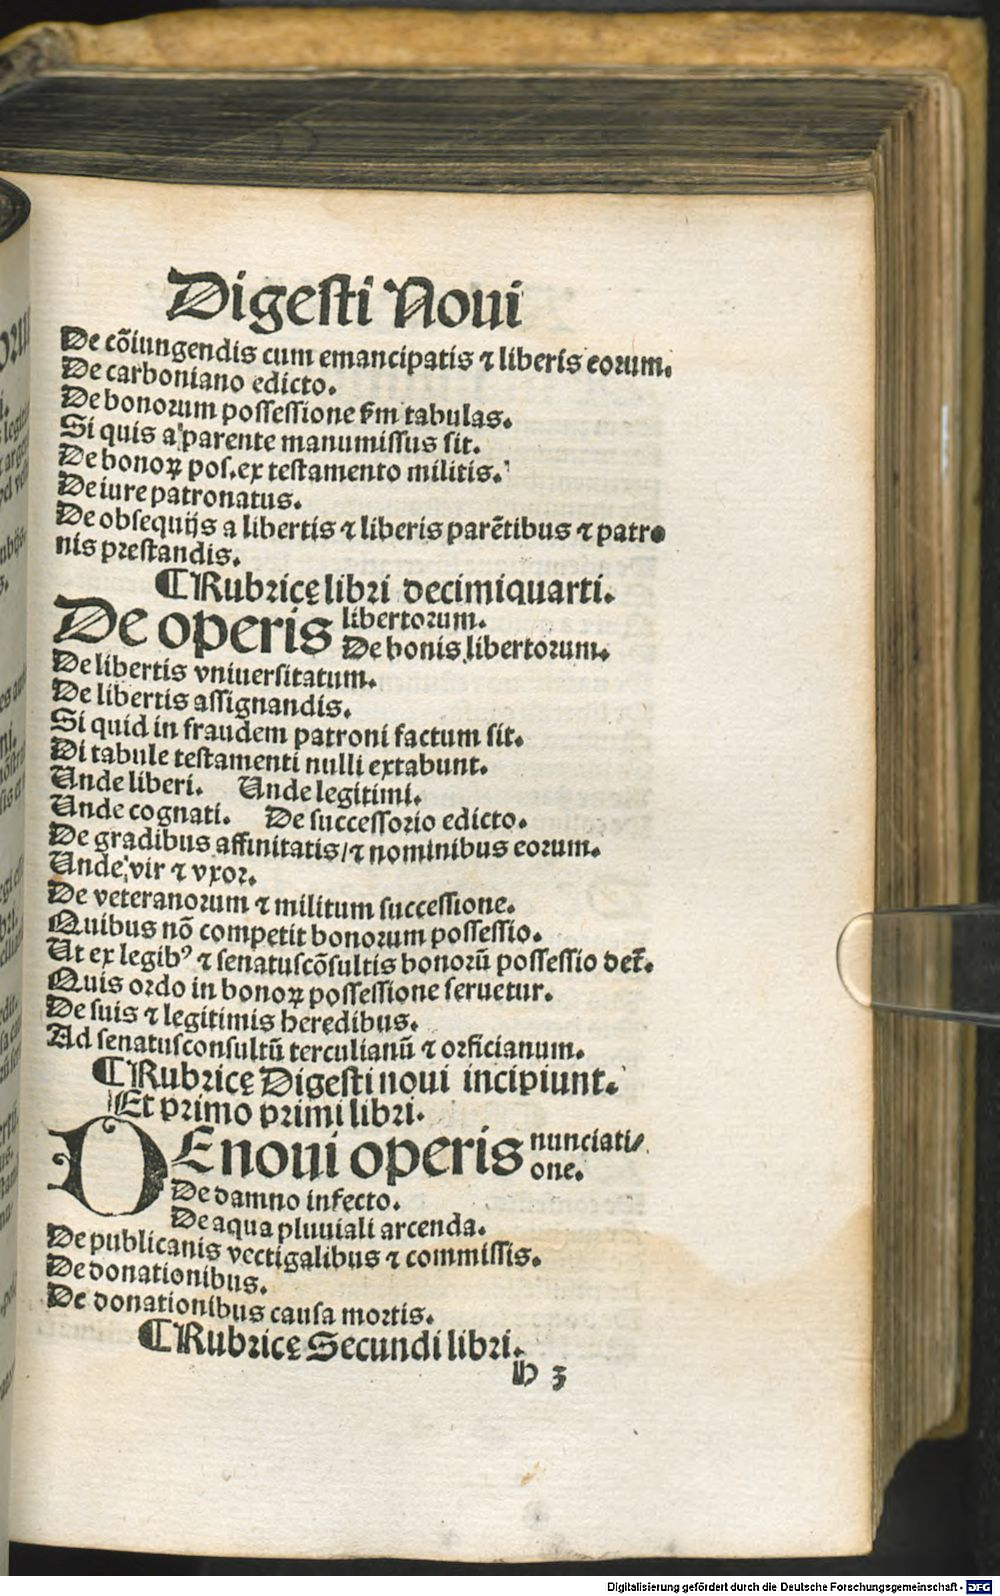 Digesti Noui
De cōiungendis cum emancipatis ⁊ liberis eorum.
De carboniano edicto.
De bonorum possessione ẜm tabulas.
Si quis a parente manumissus sit.
De bonoꝝ pos. ex testamento militis.
De iure patronatus.
De obsequijs a libertis ⁊ liberis parētibus ⁊ patro
nis prestandis.
¶Rubricę libri decimiquarti.
De operis libertorum.
De bonis libertorum.
De libertis vniuersitatum.
De libertis assignandis.
Si quid in fraudem patroni factum sit.
Di tabule testamenti nulli extabunt.
Unde liberi. Unde legitimi.
Unde cognati. De successorio edicto.
De gradibus affinitatis/⁊ nominibus eorum.
Unde vir ⁊ vxor.
De veteranorum ⁊ militum successione.
Quibus nō competit bonorum possessio.
Ut ex legibꝰ ⁊ senatuscōsultis bonorū possessio det̄.
Quis ordo in bonoꝝ possessione seruetur.
De suis ⁊ legitimis heredibus.
Ad senatusconsultū terculianū ⁊ orficianum.
¶Rubricę Digesti noui incipiunt.
Et primo primi libri.
DE noui operis nunciati/
one.
De damno infecto.
De aqua pluuiali arcenda.
De publicanis vectigalibus ⁊ commissis.
De donationibus.
De donationibus causa mortis.
¶Rubricę Secundi libri.
h 3
Digitalisierung gefördert durch die Deutsche Forschungsgemeinschaft - DFG